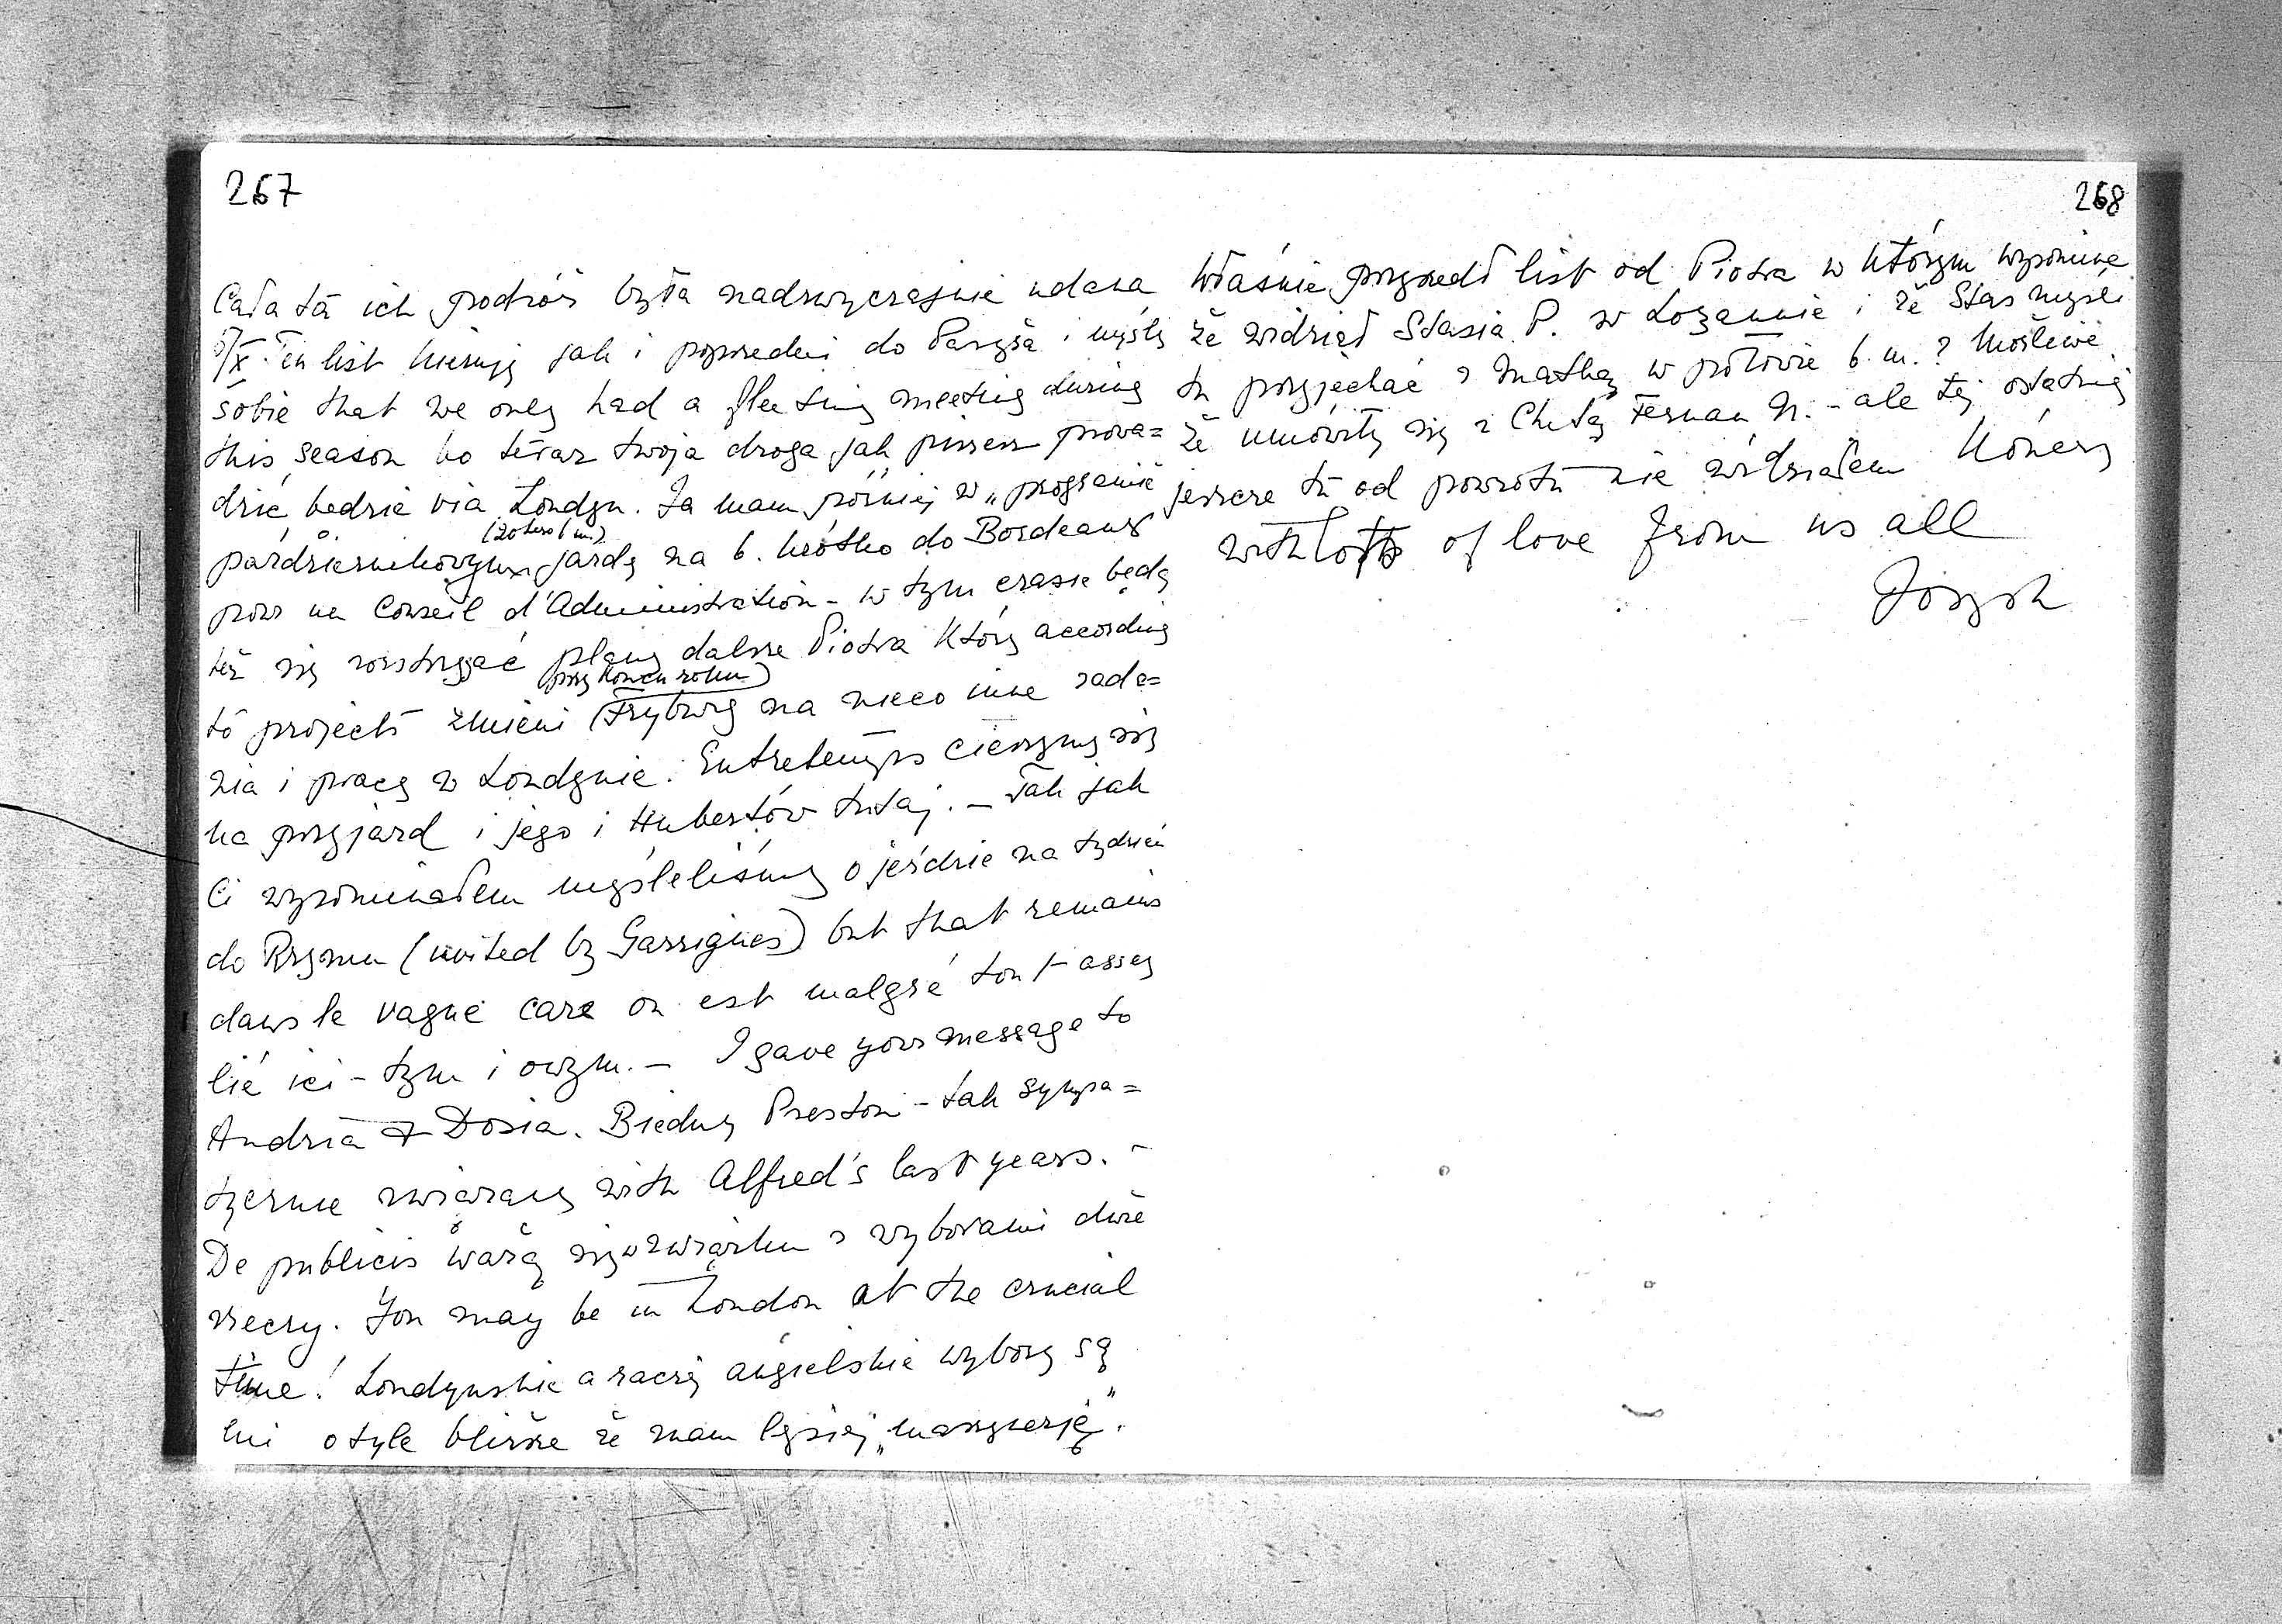 267
Cała ta ich podróż była nadzwyczajnie udana
5/X. Ten list kieruję jak i poprzedni do Paryża i myślę
sobie that we only had a fleeting meeting during
this season bo teraz twoja droga jak piszesz prowa=
dzić będzie via Londyn. Ja mam później w „programie
październikowym jazdę na b. krótko do Bordeaux
(20 tego/m)
pour un Conseil d'Administration – w tym czasie będą
też się rozstrzygać plany dalsze Piotra który according
to projects zmieni (Fryburg na nieco inne zada=
przy końcu roku)
nia i pracę w Londynie. Entretemps cieszymy się
na przyjazd i jego i Hubertów tutaj. – Tak jak
Ci wspominałem myśleliśmy o jeździe na tydzień
do Rzymu (invited by Garrigues) but that remains
dans le vague car on est malgré tout assez
lié ici – tym i owym. – I gave your message to
Andzia & Dosia. Biedny Preston – tak sympa=
tycznie związany with Alfred's last years. –
De publicis ważą się w związku z wyborami duże
rzeczy. You may be in London at the crucial
time! Londyńskie a raczej angielskie wybory są
mi o tyle bliższe że znam lepiej „maszynerję”.
268
Właśnie przyszedł list od Piotra w którym wspomina
że widział Stasia P. w Lozannie i że Staś myśli
tu przyjechać z Matką w połowie b.m.? Możliwe
że umówiły się z Chetą Fernan N. – ale tej ostatniej
jeszcze tu od powrotu nie widziałem Kończę
with lots of love from us all
Józef